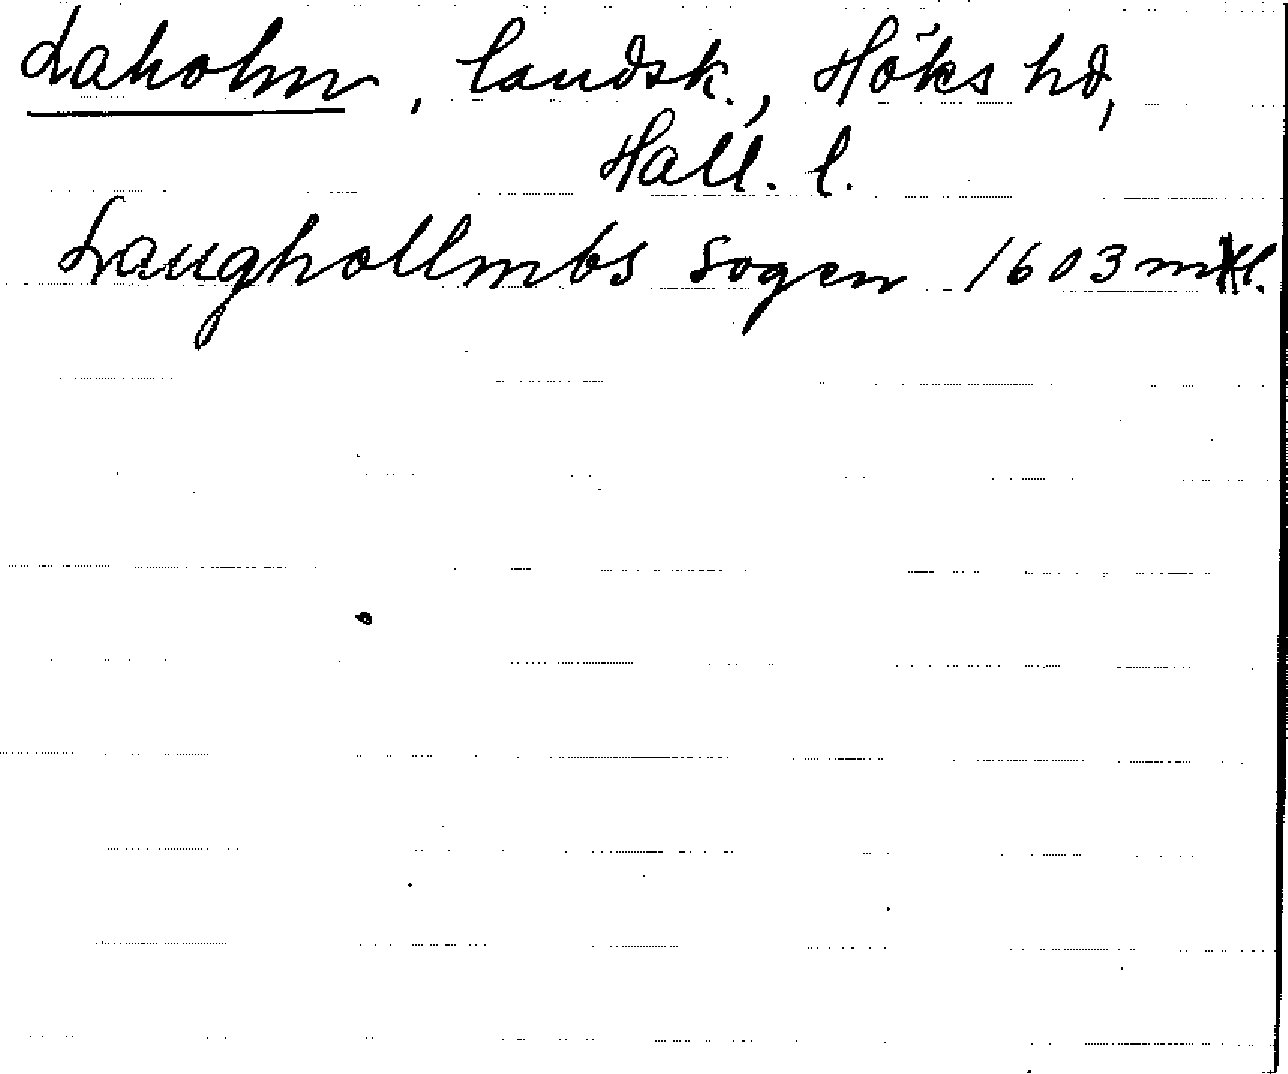 Laholm, landsk., Höks hd,
Hall. l.
Laughollmbs Sogen 1603 mtl.